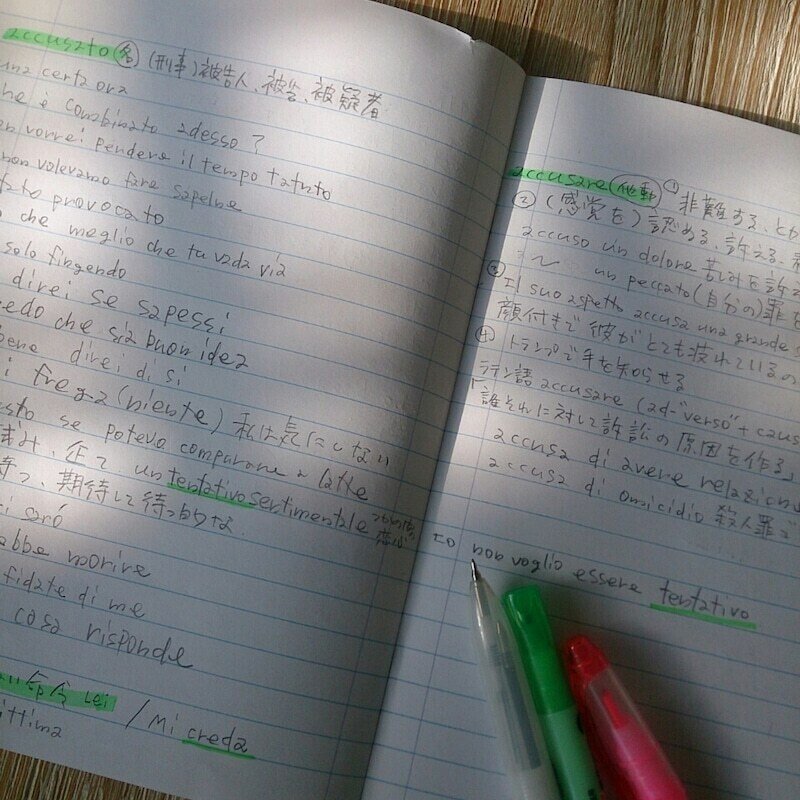 accusato (名) (刑事)被告人、被告、被疑者
una certa ora
che è combinato adesso?
vorrei pendere il tempo tatuto
non volevamo fare saperne
provocato
che meglio che tu vada via
solo fingendo
direi se sapessi
credo che sia buon idea
bene direi di si
frega (niente) 私は気にしない
se potevo comparare a latte
試み、企て un tentativo sentimentale
待つ、期待して待つ的な
sarò
morire
fidate di me
cosa risponde
命令 Lei / Mi creda
vittima
accusare (他動) ① 非難する、とが
② (感覚を) 認める、訴える、
accuso un dolore 苦痛を訴え
〃 〜 un peccato (自分の)罪を
③ Il suo aspetto accusa una grande
顔付きで彼がとても疲れているの
④ トランプで手を知らせる
ラテン語 accusare (ad-"verso" + caus
「誰それに対して訴訟の原因を作る」
accusa di avere relazion
accusa di omicidio 殺人罪で
io non voglio essere tentativo